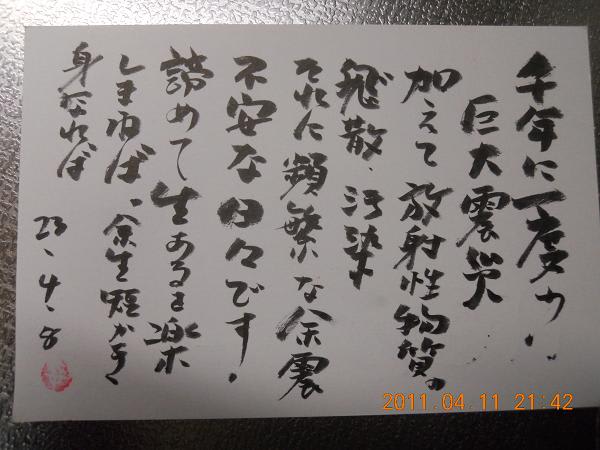 千年に一度ヵ、
巨大震災
加えて放射性物質の
飛散、汚染
それに頻繁な余震
不安な日々です。
諦めて生あるを楽
しまねば、余生短かき
身なれば
23、4、8
2011.04.11 21:42